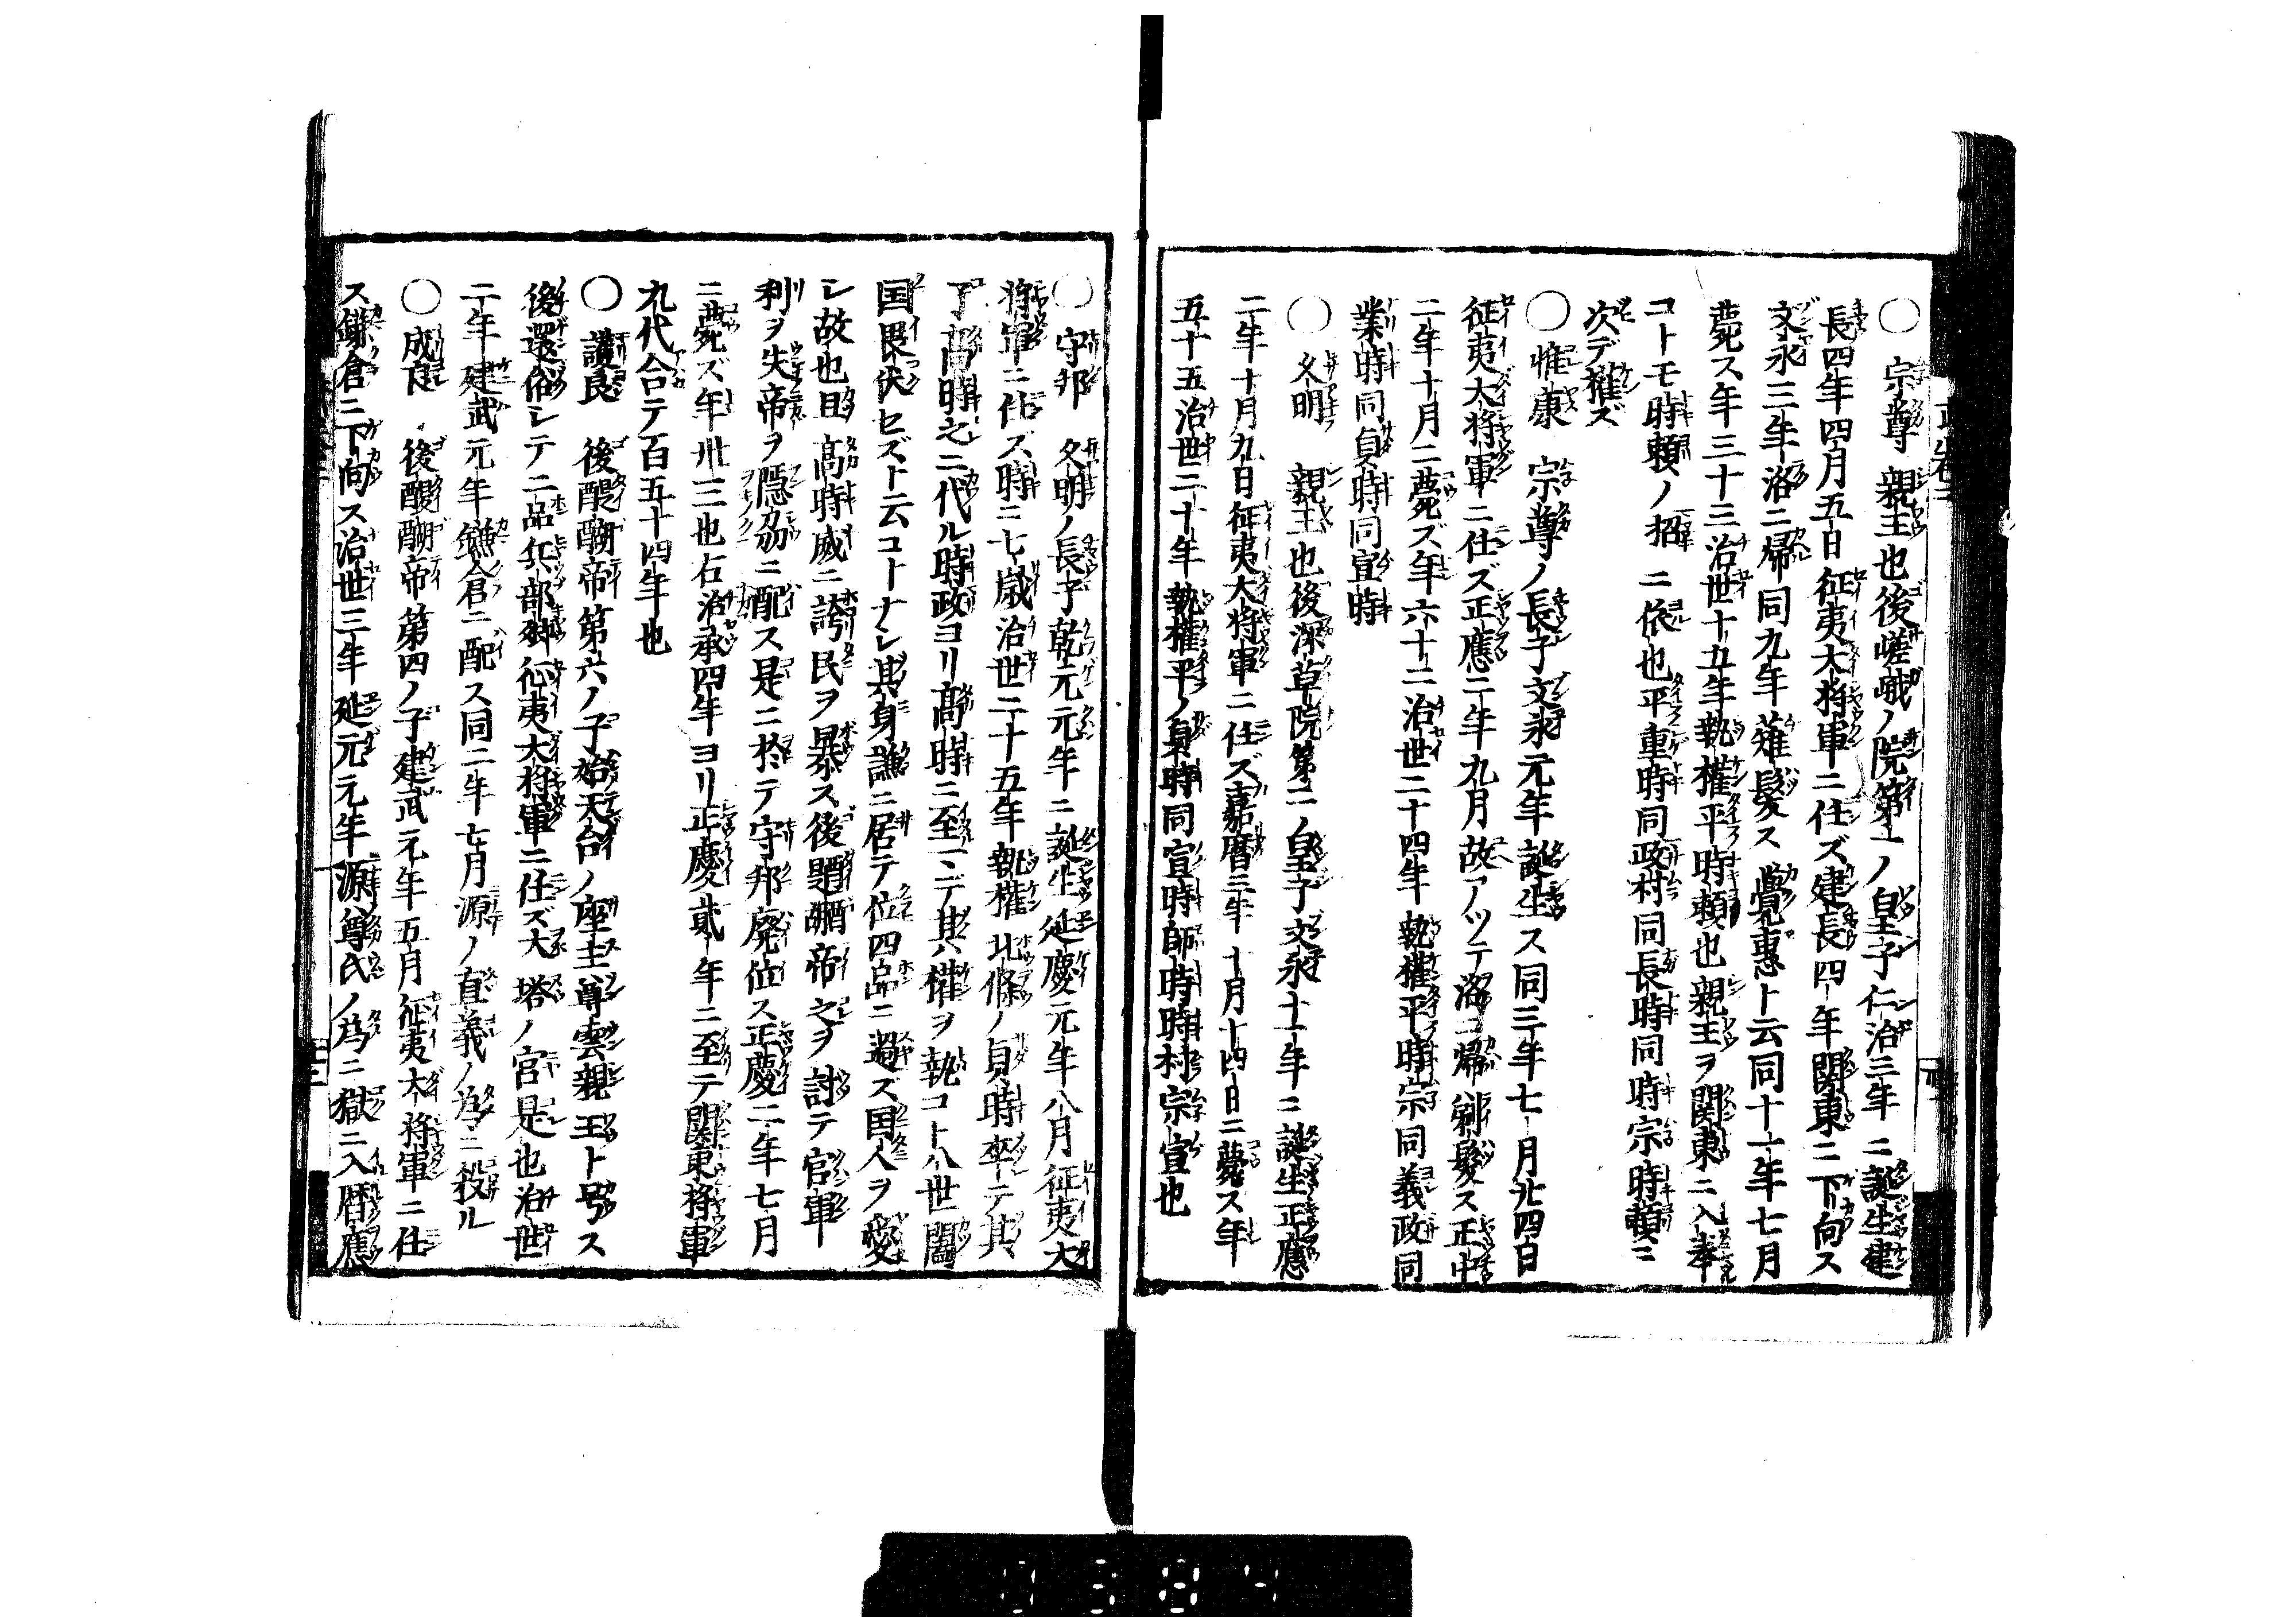 〇宗尊親王也後嵯峨ノ院第一ノ皇子仁治三年ニ誕生建
長四年四月五日征夷大将軍ニ任ズ建長四年関東ニ下向ス
文永三年洛ニ帰同九年薙髪ス覺惠ト云同十一年七月
薨ス年三十三治世十五年執權平時頼也親王ヲ関東ニ入奉
コトモ時頼ノ招ニ依也平重時同政村同長時同時宗時頼ニ
次デ權ズ
〇惟康宗尊ノ長子文永元年誕生ス同三年七月廿四日
征夷大将軍ニ任ズ正應二年九月故アツテ洛ニ帰剃髪ス正中
二年十月ニ薨ズ年六十二治世二十四年執權平時宗同義政同
業時同貞時同宣時
〇久明親王也後深草院第二ノ皇子文永十一年ニ誕生正應
二年十月九日征夷大将軍ニ任ズ嘉暦三年十月十四日ニ薨ス年
五十五治世二十年執權平ノ貞時同宣時師時時村宗宣也
〇守邦久明ノ長子乾元元年ニ誕生延慶元年八月征夷大
将軍ニ任ス時ニ七歳治世二十五年執權北條ノ貞時卒テ其
子高時之ニ代ル時政ヨリ高時ニ至ニデ其權ヲ執コト八世闔
国畏伏セズト云コトナシ其身謙ニ居テ位四品ニ過ズ国人ヲ愛
シ故也且高時威ニ誇民ヲ暴ス後醍醐帝之ヲ討テ官軍
利ヲ失帝ヲ隠岐ニ配ス是ニ於テ守邦廃位ス正慶二年七月
ニ薨ズ年卅三也右治承四年ヨリ正慶貳年ニ至テ関東将軍
九代合テ百五十四年也
〇護良後醍醐帝第六ノ子始天台ノ座主尊雲親王ト号ス
後還俗シテ二品兵部卿征夷大将軍ニ任ズ大塔ノ宮是也治世
二年建武元年鎌倉ニ配ス同二年七月源ノ直義ノ為ニ殺ル
〇成良後醍醐帝第四ノ子建武元年五月征夷大将軍ニ任
ス鎌倉ニ下向ス治世三年延元元年源尊氏ノ為ニ獄ニ入暦應